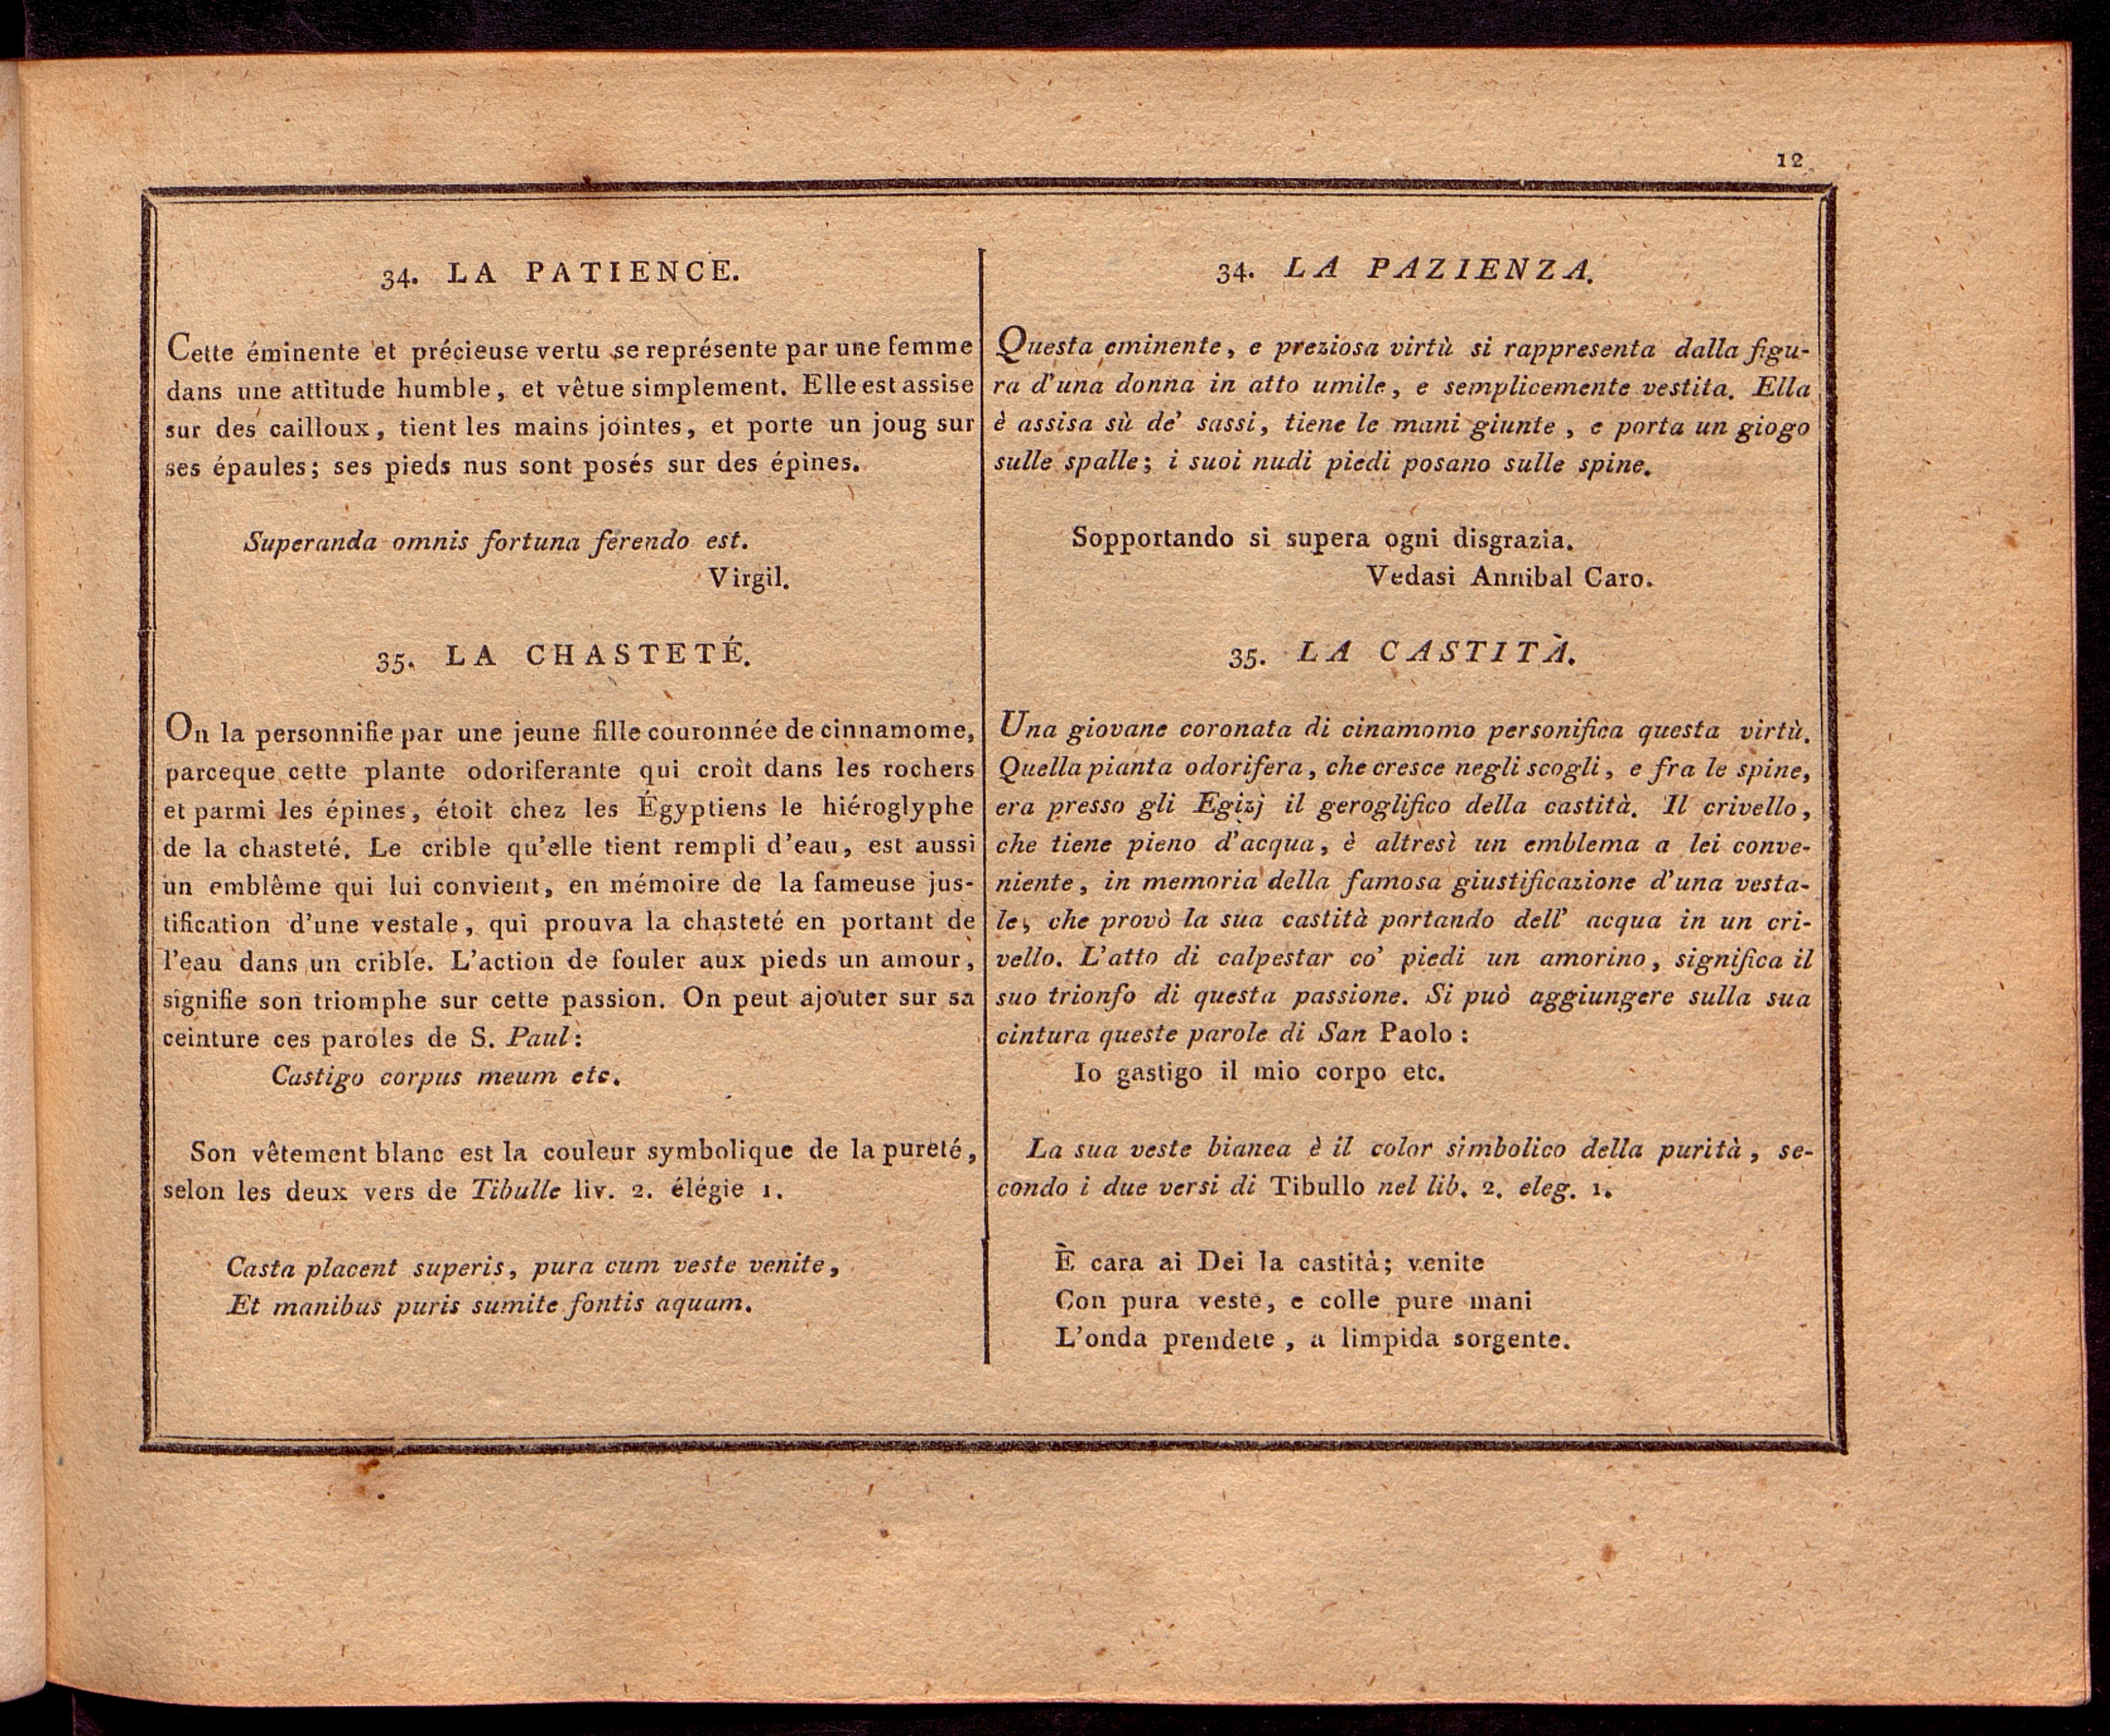 12
34. LA PATIENCE.
Cette éminente et précieuse vertu se représente par une femme
dans une attitude humble, et vêtue simplement. Elle est assise
sur des cailloux, tient les mains jointes, et porte un joug sur
ses épaules; ses pieds nus sont posés sur des épines.
Superanda omnis fortuna ferendo est.
Virgil.
35. LA CHASTETÉ.
On la personnifie par une jeune fille couronnée de cinnamome,
parceque cette plante odoriferante qui croît dans les rochers
et parmi les épines, étoit chez les Égyptiens le hiéroglyphe
de la chasteté. Le crible qu'elle tient rempli d'eau, est aussi
un emblême qui lui convient, en mémoire de la fameuse jus-
tification d'une vestale, qui prouva la chasteté en portant de
l'eau dans un crible. L'action de fouler aux pieds un amour,
signifie son triomphe sur cette passion. On peut ajouter sur sa
ceinture ces paroles de S. Paul:
Castigo corpus meum etc.
Son vêtement blanc est la couleur symbolique de la pureté,
selon les deux vers de Tibulle liv. 2. élégie 1.
Casta placent superis, pura cum veste venite,
Et manibus puris sumite fontis aquam.
34. LA PAZIENZA.
Questa eminente, e preziosa virtù si rappresenta dalla figu-
ra d'una donna in atto umile, e semplicemente vestita. Ella
è assisa sù de' sassi, tiene le mani giunte, e porta un giogo
sulle spalle; i suoi nudi piedi posano sulle spine.
Sopportando si supera ogni disgrazia.
Vedasi Annibal Caro.
35. LA CASTITÀ.
Una giovane coronata di cinamomo personifica questa virtù.
Quella pianta odorifera, che cresce negli scogli, e fra le spine,
era presso gli Egizj il geroglifico della castità. Il crivello,
che tiene pieno d'acqua, è altresì un emblema a lei conve-
niente, in memoria della famosa giustificazione d'una vesta-
le, che provò la sua castità portando dell' acqua in un cri-
vello. L'atto di calpestar co' piedi un amorino, significa il
suo trionfo di questa passione. Si può aggiungere sulla sua
cintura queste parole di San Paolo:
Io gastigo il mio corpo etc.
La sua veste bianca è il color simbolico della purità, se-
condo i due versi di Tibullo nel lib. 2. eleg. 1.
È cara ai Dei la castità; venite
Con pura veste, e colle pure mani
L'onda prendete, a limpida sorgente.